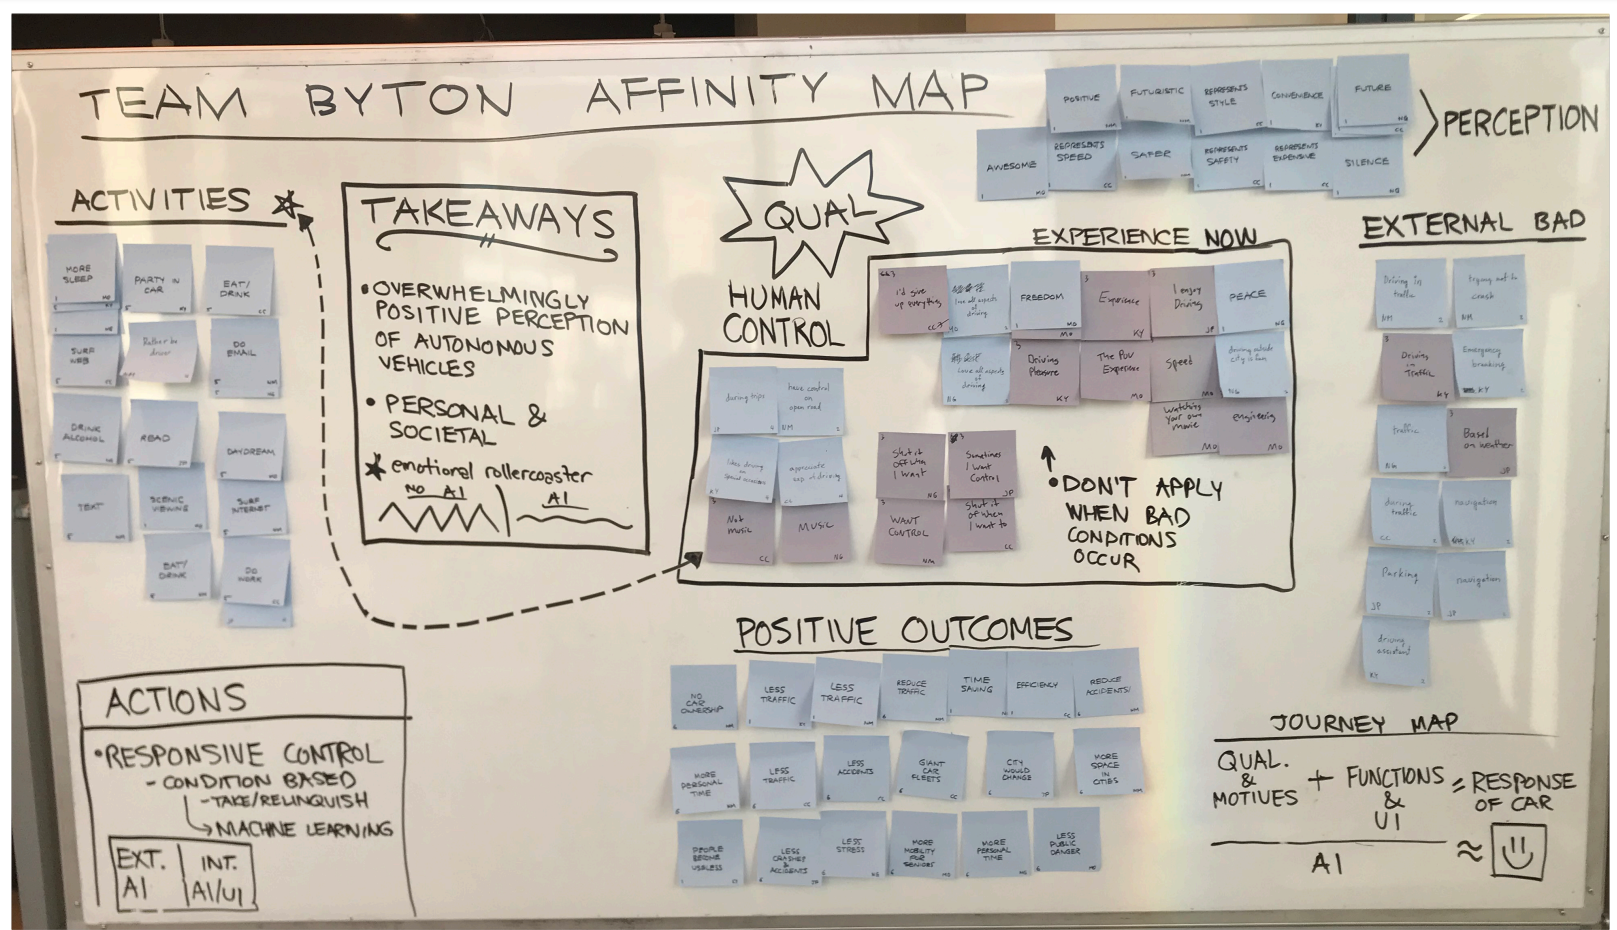 TEAM BYTON AFFINITY MAP
POSITIVE
FUTURISTIC
REPRESENTS
STYLE
CONVENIENCE
FUTURE
AWESOME
REPRESENTS
SPEED
SAFER
REPRESENTS
SAFETY
REPRESENTS
EXPENSIVE
SILENCE
PERCEPTION
ACTIVITIES
MORE
SLEEP
PARTY IN
CAR
EAT/
DRINK
SURF
WEB
Rather be
driver
DO
EMAIL
DRINK
ALCOHOL
READ
DAYDREAM
TEXT
SCENIC
VIEWING
SURF
INTERNET
EAT/
DRINK
DO
WORK
TAKEAWAYS
•OVERWHELMINGLY
POSITIVE PERCEPTION
OF AUTONOMOUS
VEHICLES
• PERSONAL &
SOCIETAL
emotional rollercoaster
NO AI
AI
QUAL
HUMAN
CONTROL
EXPERIENCE NOW
I'd give
up everything
love all aspects
of
driving
FREEDOM
Experience
I enjoy
Driving
PEACE
love all aspects
of
driving
Driving
Pleasure
The POV
Experience
Speed
driving outside
city is fun
Watching
your own
movie
engineering
during trips
have control
on
open road
likes driving
on
special occasions
appreciate
exp. of driving
Not
music
MUSIC
Shut it
off when
I want
Sometimes
I want
Control
WANT
CONTROL
Shut it
off when
I want to
•DON'T APPLY
WHEN BAD
CONDITIONS
OCCUR
EXTERNAL BAD
Driving in
traffic
trying not to
crash
Driving
in
Traffic
Emergency
breaking
traffic
Based
on weather
during
traffic
navigation
Parking
navigation
driving
assistant
POSITIVE OUTCOMES
NO
CAR
OWNERSHIP
LESS
TRAFFIC
LESS
TRAFFIC
REDUCE
TRAFFIC
TIME
SAVING
EFFICIENCY
REDUCE
ACCIDENTS/
MORE
PERSONAL
TIME
LESS
TRAFFIC
LESS
ACCIDENTS
GIANT
CAR
FLEETS
CITY
WOULD
CHANGE
MORE
SPACE
IN
CITIES
PEOPLE
BECOME
USELESS
LESS
CRASHES
&
ACCIDENTS
LESS
STRESS
MORE
MOBILITY
FOR
SENIORS
MORE
PERSONAL
TIME
LESS
PUBLIC
DANGER
ACTIONS
•RESPONSIVE CONTROL
- CONDITION BASED
- TAKE/RELINQUISH
→ MACHINE LEARNING
EXT.
AI
INT.
AI/UI
JOURNEY MAP
QUAL.
&
MOTIVES
+
FUNCTIONS
&
UI
= RESPONSE
OF CAR
AI
≈